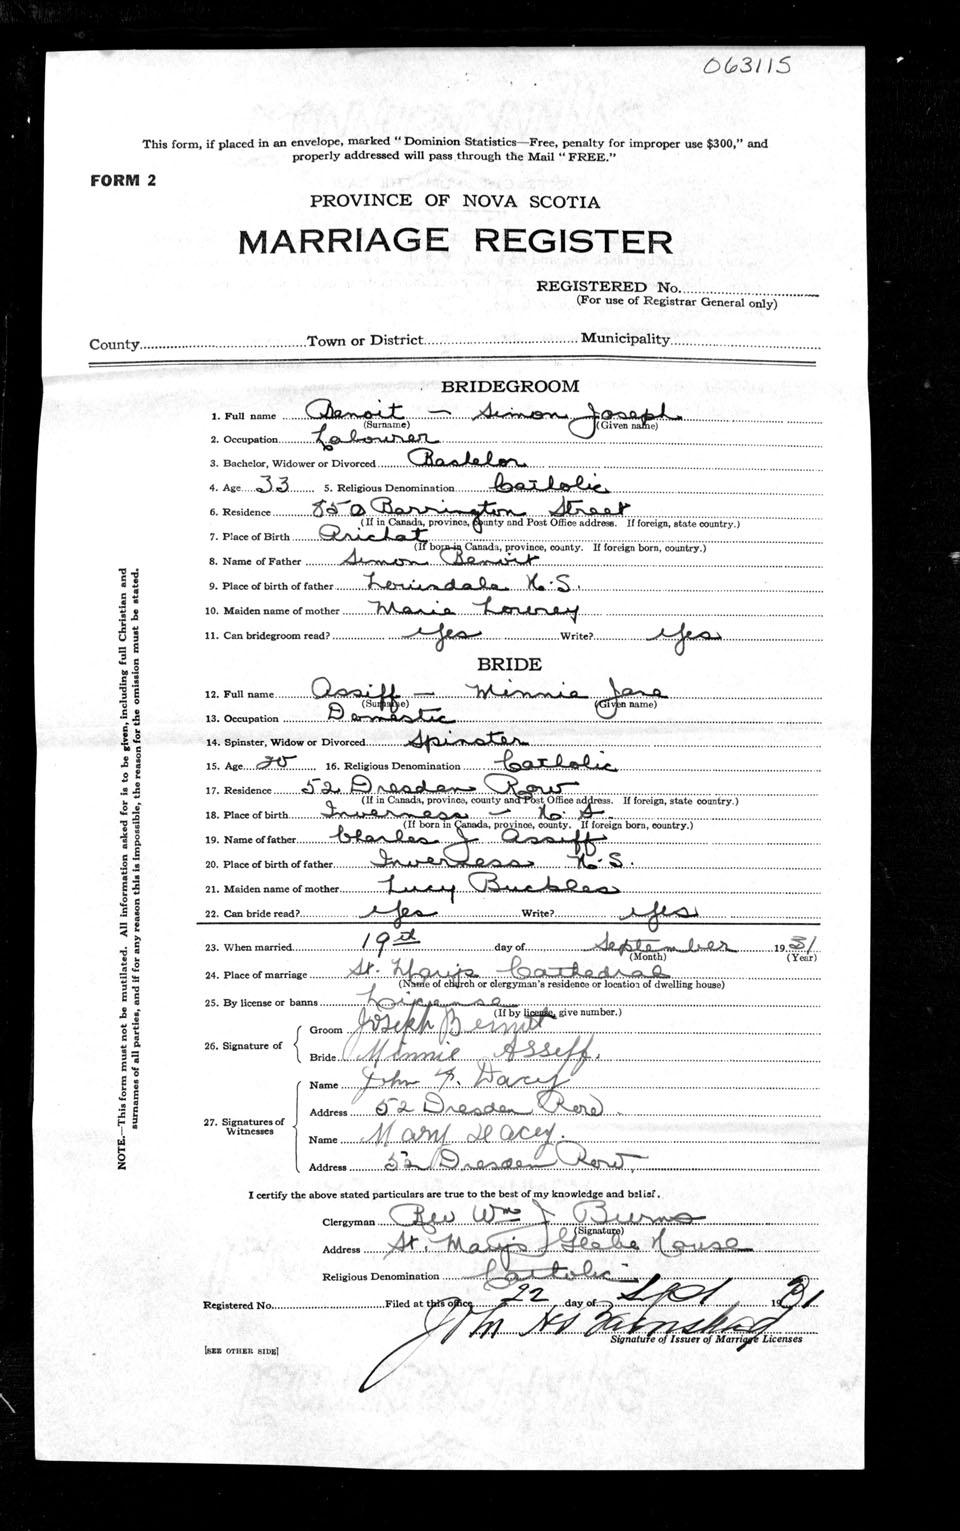 063115
This form, if placed in an envelope, marked "Dominion Statistics—Free, penalty for improper use $300," and
properly addressed will pass through the Mail "FREE."
FORM 2
PROVINCE OF NOVA SCOTIA
MARRIAGE REGISTER
REGISTERED No.
(For use of Registrar General only)
County Town or District Municipality
BRIDEGROOM
1. Full name Benoit — Simon Joseph
(Surname) (Given name)
2. Occupation Labourer
3. Bachelor, Widower or Divorced Bachelor
4. Age 33 5. Religious Denomination Catholic
6. Residence 850 Barrington Street
(If in Canada, province, county and Post Office address. If foreign, state country.)
7. Place of Birth Arichat
(If born in Canada, province, county. If foreign born, country.)
8. Name of Father Simon Benoit
9. Place of birth of father Louisdale N.S.
10. Maiden name of mother Marie
11. Can bridegroom read? Yes Write? Yes
BRIDE
12. Full name Assiff — Minnie Jane
(Surname) (Given name)
13. Occupation Domestic
14. Spinster, Widow or Divorced Spinster
15. Age 20 16. Religious Denomination Catholic
17. Residence 52 Dresden Row
(If in Canada, province, county and Post Office address. If foreign, state country.)
18. Place of birth Inverness — N.S.
(If born in Canada, province, county. If foreign born, country.)
19. Name of father Charles J. Assiff
20. Place of birth of father Inverness N.S.
21. Maiden name of mother Lucy Buckles
22. Can bride read? Yes Write? Yes
23. When married 19th day of September 1931
(Month) (Year)
24. Place of marriage St. Mary's Cathedral
(Name of church or clergyman's residence or location of dwelling house)
25. By license or banns License
(If by license, give number.)
26. Signature of
Groom Joseph Benoit
Bride Minnie Asseff.
27. Signatures of
Witnesses
Name John F. Dacey
Address 52 Dresden Row
Name Mary Dacey.
Address 52 Dresden Row,
I certify the above stated particulars are true to the best of my knowledge and belief.
Clergyman Rev Wm J Burns
(Signature)
Address St. Mary's Glebe House
Religious Denomination Catholic
Registered No. Filed at this office 22 day of Sept 1931
John
Signature of Issuer of Marriage Licenses
[SEE OTHER SIDE]
NOTE.—This form must not be mutilated. All information asked for is to be given, including full Christian and
surnames of all parties, and if for any reason this is impossible, the reason for the omission must be stated.